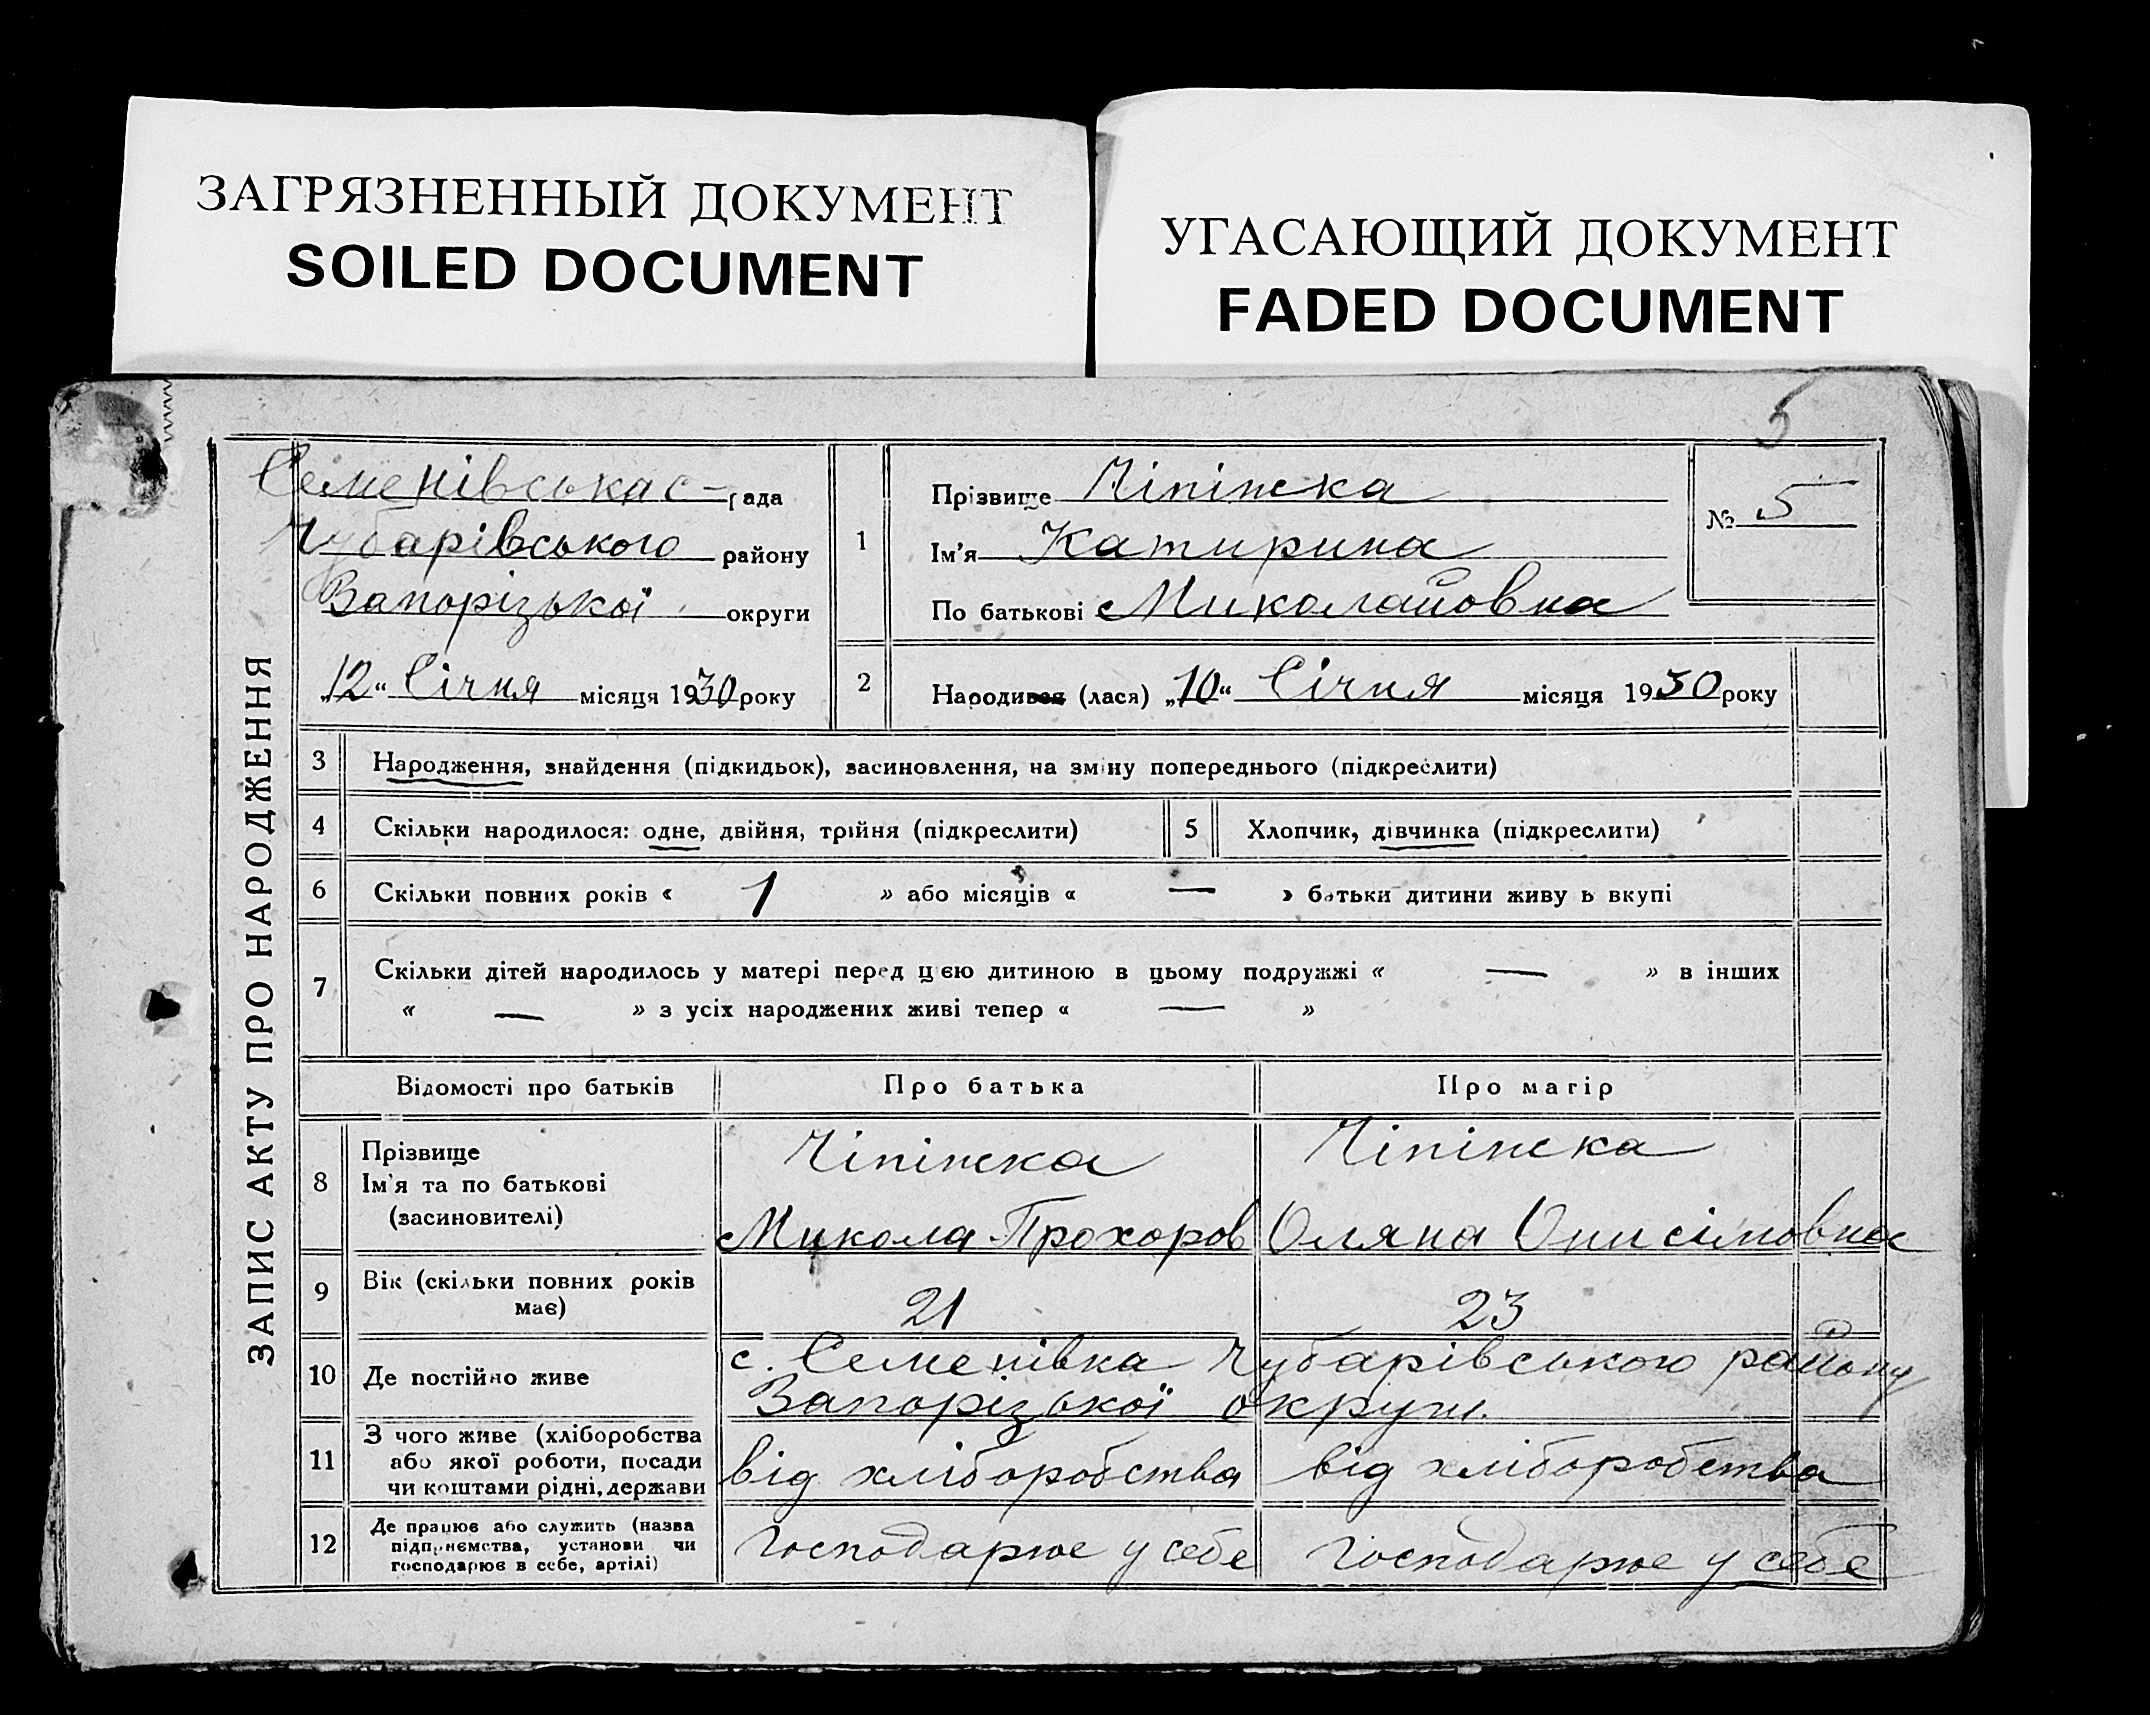 ЗАГРЯЗНЕННЫЙ ДОКУМЕНТ
SOILED DOCUMENT
УГАСАЮЩИЙ ДОКУМЕНТ
FADED DOCUMENT
5
ЗАПИС АКТУ ПРО НАРОДЖЕННЯ
Семенівська с-рада
Чубарівського району
Запорізької округи
„12“ Січня місяця 1930 року
1
Прізвище
Ім'я Катирина
По батькові Миколайовна
№ 5
2 Народився (лася) „10“ Січня місяця 1930 року
3 Народження, знайдення (підкидьок), засиновлення, на зміну попереднього (підкреслити)
4 Скільки народилося: одне, двійня, трійня (підкреслити)
5 Хлопчик, дівчинка (підкреслити)
6 Скільки повних років « 1 » або місяців « — » батьки дитини живуть вкупі
7 Скільки дітей народилось у матері перед цією дитиною в цьому подружжі « — » в інших
« — » з усіх народжених живі тепер « — »
Відомості про батьків Про батька Про матір
8 Прізвище
Ім'я та по батькові
(засиновителі)
Микола Прохоров Оляна Онисімовна
9 Вік (скільки повних років
має)
21 23
10 Де постійно живе
с. Семенівка Чубарівського району
Запорізької округи.
11 З чого живе (хліборобства
або якої роботи, посади
чи коштами рідні, держави
від хліборобства від хліборобства
12 Де працює або служить (назва
підприємства, установи чи
господарює в себе, артілі)
господарює у себе господарює у себе